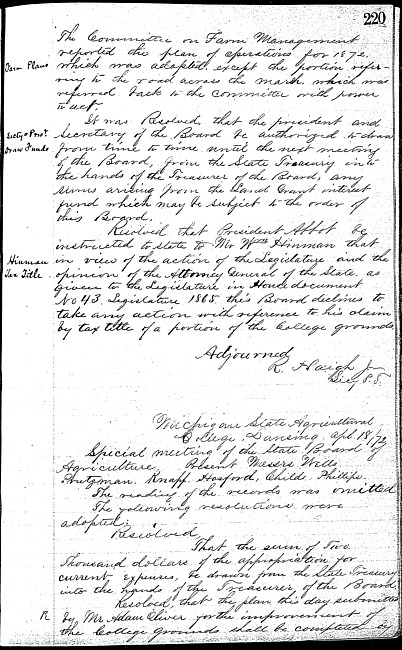 220
The Committee on Farm Management
reported the plan of operations for 1872
Farm Plans which was adopted except the portion refer-
ring to the road across the marsh which was
referred back to the committee with power
to act.
It was Resolved that the president and
Secty & Prest Secretary of the Board be authorized to draw
Draw Funds from time to time until the next meeting
of the Board, from the State Treasury into
the hands of the Treasurer of the Board, any
sums arising from the Land Grant interest
fund which may be subject to the order of
this Board.
Resolved that President Abbot be
instructed to state to Mr Wm Hinman that
Hinman in view of the action of the Legislature and the
Tax Title opinion of the Attorney General of the State, as
given to the Legislature in House document
No 43, Legislature 1865 this Board declines to
take any action with reference to his claim
by tax title of a portion of the College grounds
Adjourned
R. Haigh Jr
Secy P.S.
Michigan State Agricultural
College, Lansing, Apl 18/72
Special meeting of the State Board of
Agriculture, Present Messrs Wells,
Prutzman, Knapp, Hosford, Childs, Phillips.
The reading of the records was omitted
The following resolutions were
adopted:
Resolved
That the sum of Two
Thousand dollars of the appropriation for
current expenses, be drawn from the State Treasury
into the hands of the Treasurer of the Board
Resolved, that the plan this day submitted
R by Mr Adam Oliver for the improvement of
the College grounds shall be completed by